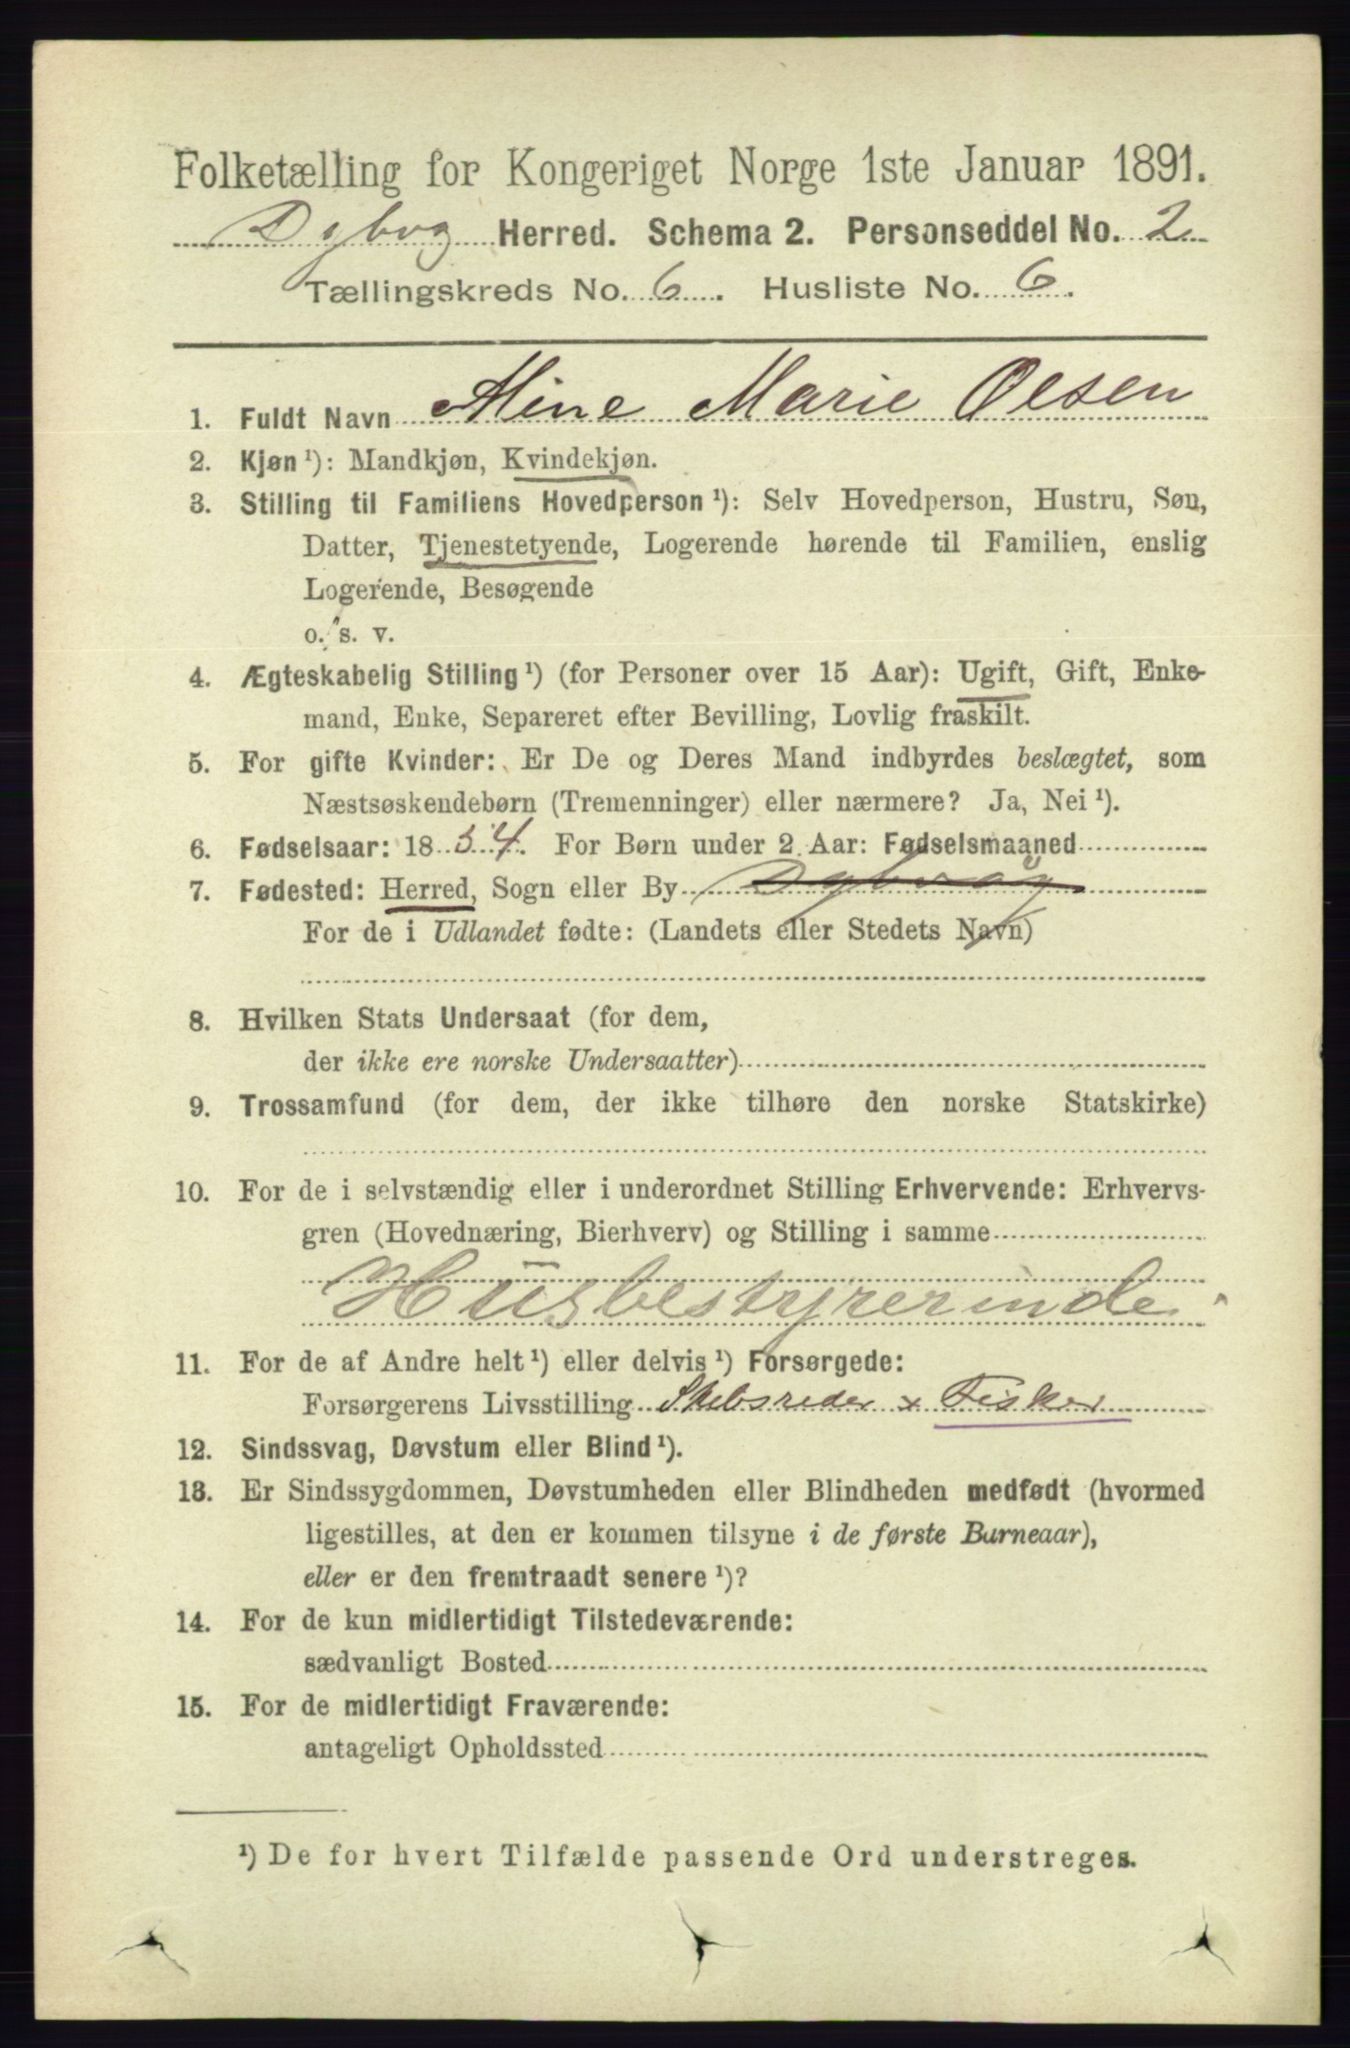 Folketælling for Kongeriget Norge 1ste Januar 1891.
Dybvg Herred. Schema 2. Personseddel No. 2
Tællingskreds No. 6. Husliste No. 6.
1. Fuldt Navn Aline Marie Olsen
2. Kjøn ¹): Mandkjøn, Kvindekjøn.
3. Stilling til Familiens Hovedperson ¹): Selv Hovedperson, Hustru, Søn,
Datter, Tjenestetyende, Logerende hørende til Familien, enslig
Logerende, Besøgende
o. s. v.
4. Ægteskabelig Stilling ¹) (for Personer over 15 Aar): Ugift, Gift, Enke-
mand, Enke, Separeret efter Bevilling, Lovlig fraskilt.
5. For gifte Kvinder: Er De og Deres Mand indbyrdes beslægtet, som
Næstsøskendebørn (Tremenninger) eller nærmere? Ja, Nei ¹).
6. Fødselsaar: 1854. For Børn under 2 Aar: Fødselsmaaned
7. Fødested: Herred, Sogn eller By Dybvåg
For de i Udlandet fødte: (Landets eller Stedets Navn)
8. Hvilken Stats Undersaat (for dem,
der ikke ere norske Undersaatter)
9. Trossamfund (for dem, der ikke tilhøre den norske Statskirke)
10. For de i selvstændig eller i underordnet Stilling Erhvervende: Erhvervs-
gren (Hovednæring, Bierhverv) og Stilling i samme
Husbestyrerinde.
11. For de af Andre helt ¹) eller delvis ¹) Forsørgede:
Forsørgerens Livsstilling Skibsreder x Fisker
12. Sindssvag, Døvstum eller Blind ¹).
13. Er Sindssygdommen, Døvstumheden eller Blindheden medfødt (hvormed
ligestilles, at den er kommen tilsyne i de første Barneaar),
eller er den fremtraadt senere ¹)?
14. For de kun midlertidigt Tilstedeværende:
sædvanligt Bosted
15. For de midlertidigt Fraværende:
antageligt Opholdssted
¹) De for hvert Tilfælde passende Ord understreges.